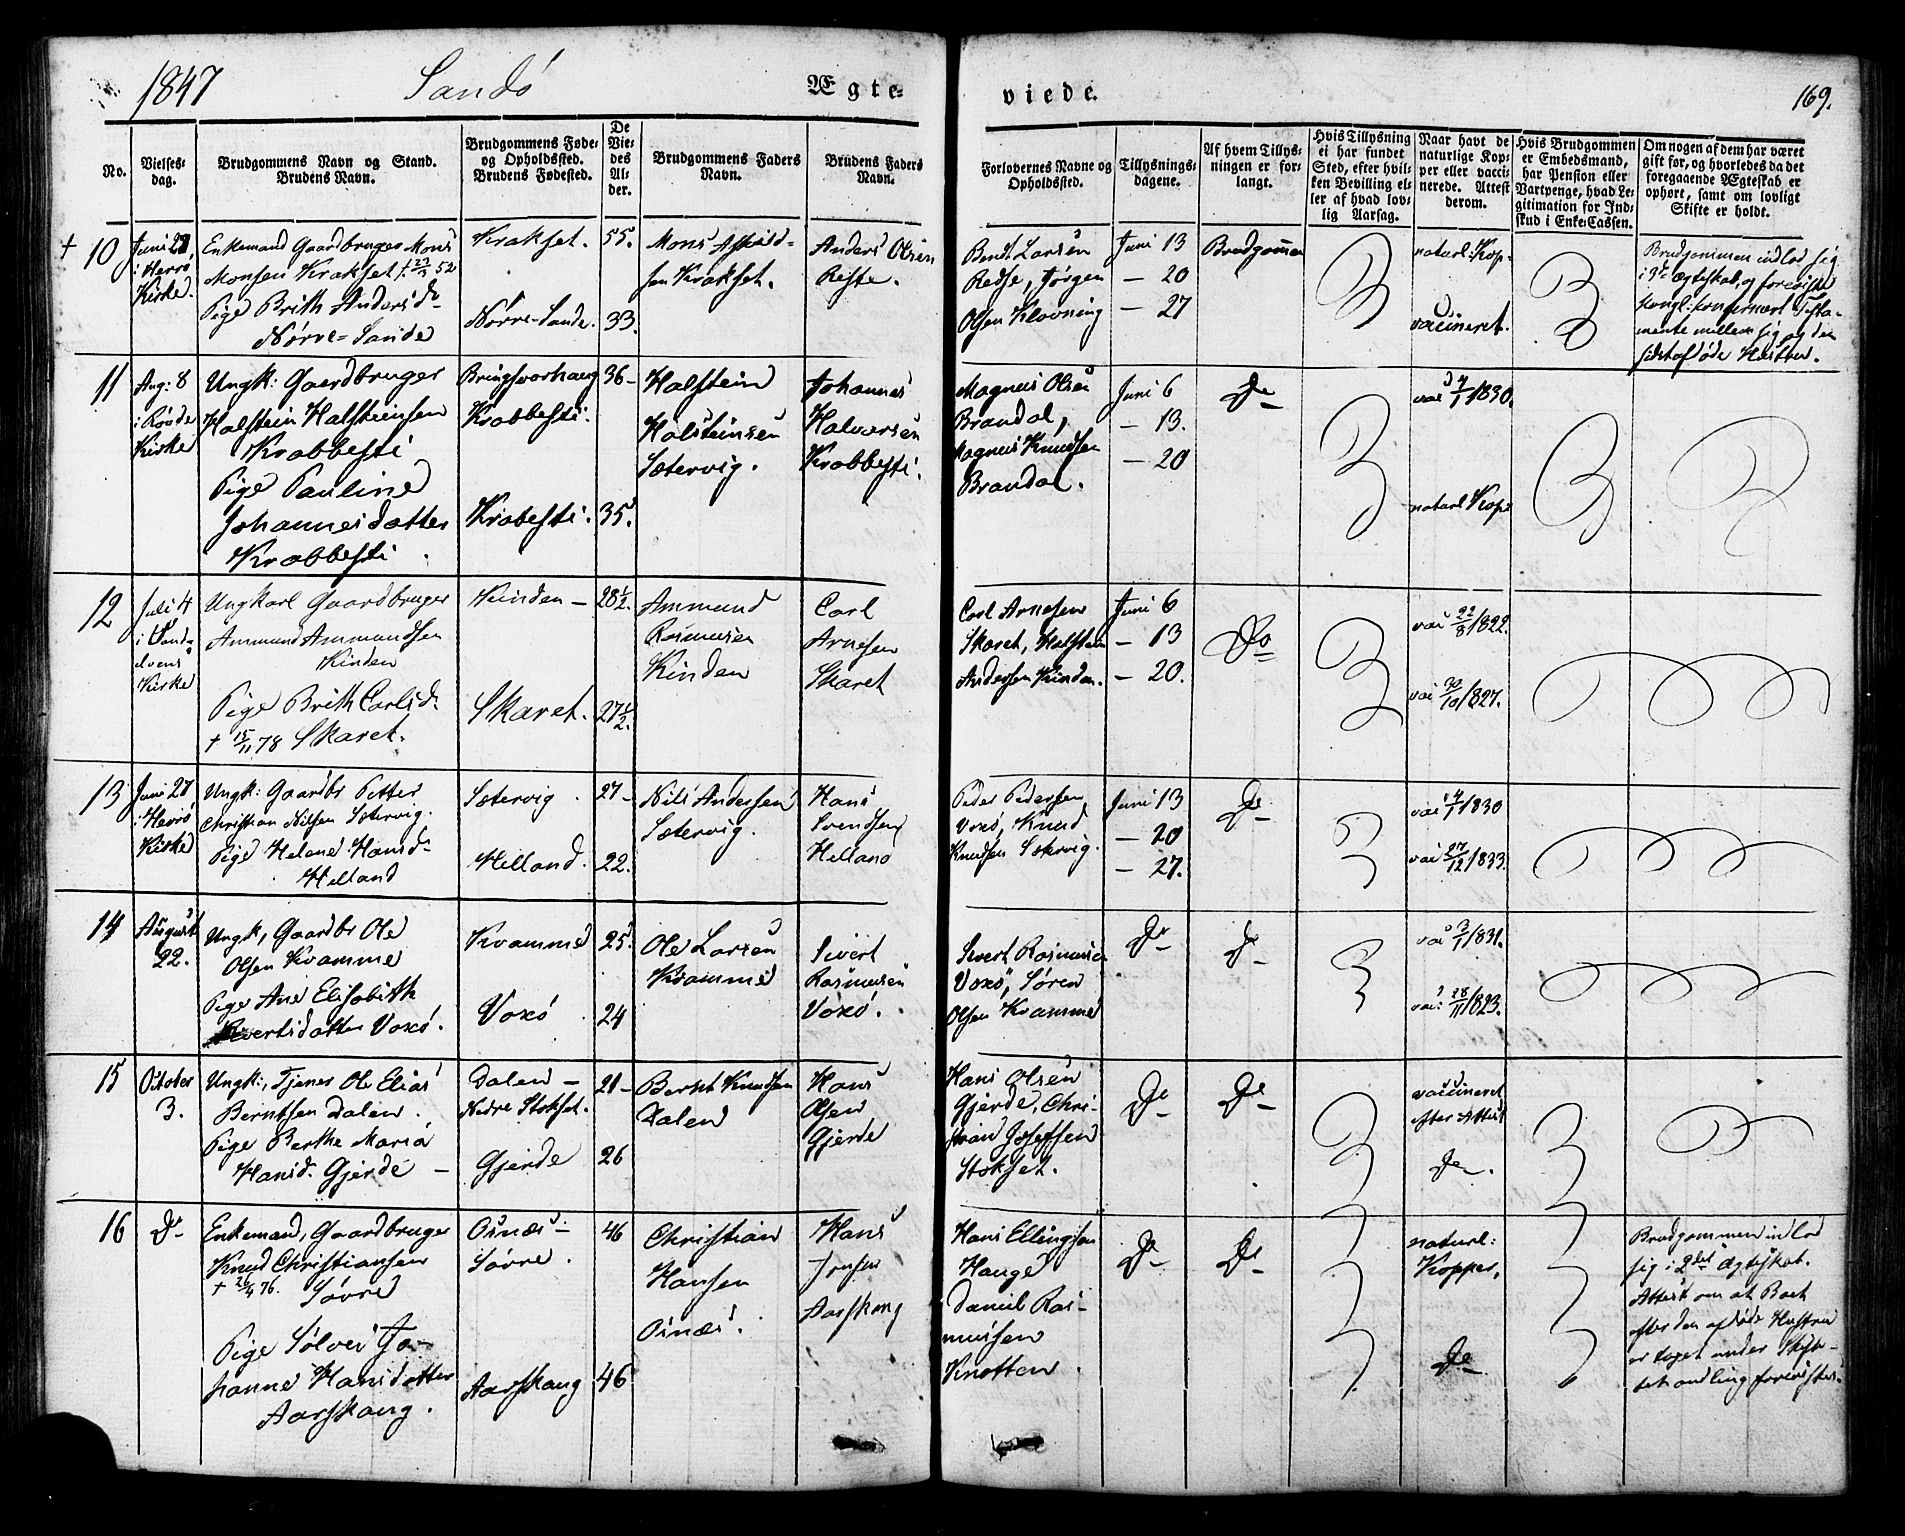 1847 Sandö Ægte=
viede. 169.
No.
Vielses=
dag.
Brudgommens Navn og Stand.
Brudens Navn.
Brudgommens Føde=
og Opholdssted.
Brudens Fødested.
De
Vie=
des
Al=
der.
Brudgommens Faders
Navn.
Brudens Faders
Navn.
Forlovernes Navne og
Opholdssted.
Tillysnings=
dagene.
Af hvem Tillys=
ningen er for=
langt.
Hvis Tillysning
ei har fundet
Sted, efter hvil=
ken Bevilling el=
ler af hvad lov=
lig Aarsag.
Naar havt de
naturlige Kop=
per eller vacci=
nerede. Attest
derom.
Hvis Brudgommen
er Embedsmand,
har Pension eller
Vartpenge, hvad Le=
gitimation for Ind=
skud i Enke=Cassen.
Om nogen af dem har været
gift før, og hvorledes da det
foregaaende Ægteskab er
ophørt, samt om lovligt
Skifte er holdt.
† 10
Juni 27
i Herrö
Kirke.
Enkemand Gaardbruger Mons
Monsen Krakset † 23/3 52
Pige Brith Andersd=
Nørre=Sande
Krakset.
Nørre=Sande.
55.
33.
Mons
sen Krakset.
Anders Olsen
Reste.
Bent Larsen
Redse, Jörgen
Olsen Klovning
Juni 13
— 20
— 27
Brudgommen
naturl: Kop.
vaccineret.
Brudgommen indlod sig
i 3die Ægteskab, og foreviste
kongl: konfirmert Testa-
mente mellem sig og den
sidst afdöde Hustru.
11
Aug: 8
i Rovde
Kirke
Ungk: Gaardbruger
Halstein Halsteinsen
Krabbesti
Pige Pauline
Johannesdatter
Krabbesti.
Bringsvorhaug
Krabbesti.
Krabesti.
36—
35.
Halstein
Halsteinsen
Sætervig.
Johannes
Halvorsen
Krabbesti.
Magnus Olsen
Brandal,
Magnus Knudsen
Brandal.
Juni 6
— 13.
— 20
Do
vac 4/1 1830.
naturl Kop.
12
Juli 4
i Vand=
elvens
Kirke
Ungkarl Gaardbruger
Ammund Ammundsen
Kinden
Pige Brith Carlsd.
† 15/11 78 Skaret.
Kinden —
Skaret.
28½.
27½.
Ammund
Rasmusen
Kinden
Carl
Arnesen
Skaret
Carl Arnesen
Skaret, Halsten
Andersen Kinden.
Juni 6
— 13
— 20.
Do
vac 22/8 1822.
vac 30/10 1827.
13
Juni 27
i Herrö
Kirke
Ungk: Gaardbr Petter
Christian Nilsen Sætervig.
Pige Helene Hansd=
Helland
Sætervig.
Helland.
27—
22.
Nils Andersen
Sætervig.
Hans
Svendsen
Helland
Peder Pedersen
Voxö, Knud
Knudsen Sætervig.
Juni 13
— 20
— 27.
Do
vac 4/1 1830
vac 27/12 1833.
14
August
22.
Ungk, Gaardbr Ole
Olsen Kvamme
Pige Ane Elisabeth
Sivertsdatter Voxö.
Kvamme
Voxö
25
24
Ole Larsen
Kvamme
Sivert
Rasmusen
Voxö.
Sivert Rasmusen
Voxö, Sören
Olsen Kvamme
Do
Do
vac 3/1 1831.
vac: 28/11 1823.
15
October
3.
Ungk:, Tjener Ole Elias
Berntsen Dalen.
Pige Berthe Maria
Hansd. Gjerde —
Dalen —
Nedre Stokset.
Gjerde
21—
26
Bernt Knudsen
Dalen
Hans
Olsen
Gjerde
Hans Olsen
Gjerde, Chri-
stian Josefsen
Stokset.
Do
Do
vaccineret
efter Attest
Do.
16
Do
Enkemand, Gaardbruger
Knud Christiansen
† 26/4 76. Søvre
Pige Sølvei Jo-
hanne Hansdatter
Aarskoug.
Osnæs —
Søvre.
Aarskoug
46
46
Christian
Hansen
Osnæs.
Hans
Aarskoug
Hans Ellingsen
Hauge
Daniel Ras-
mussen
Knotten.
Do
Do
naturl:
Kopper,
Do
Brudgommen indlod
sig i 2det Ægteskab.
Attest om at Boet
efter den afdöde Hustru
er taget under Skifte-
behandling forevistes.